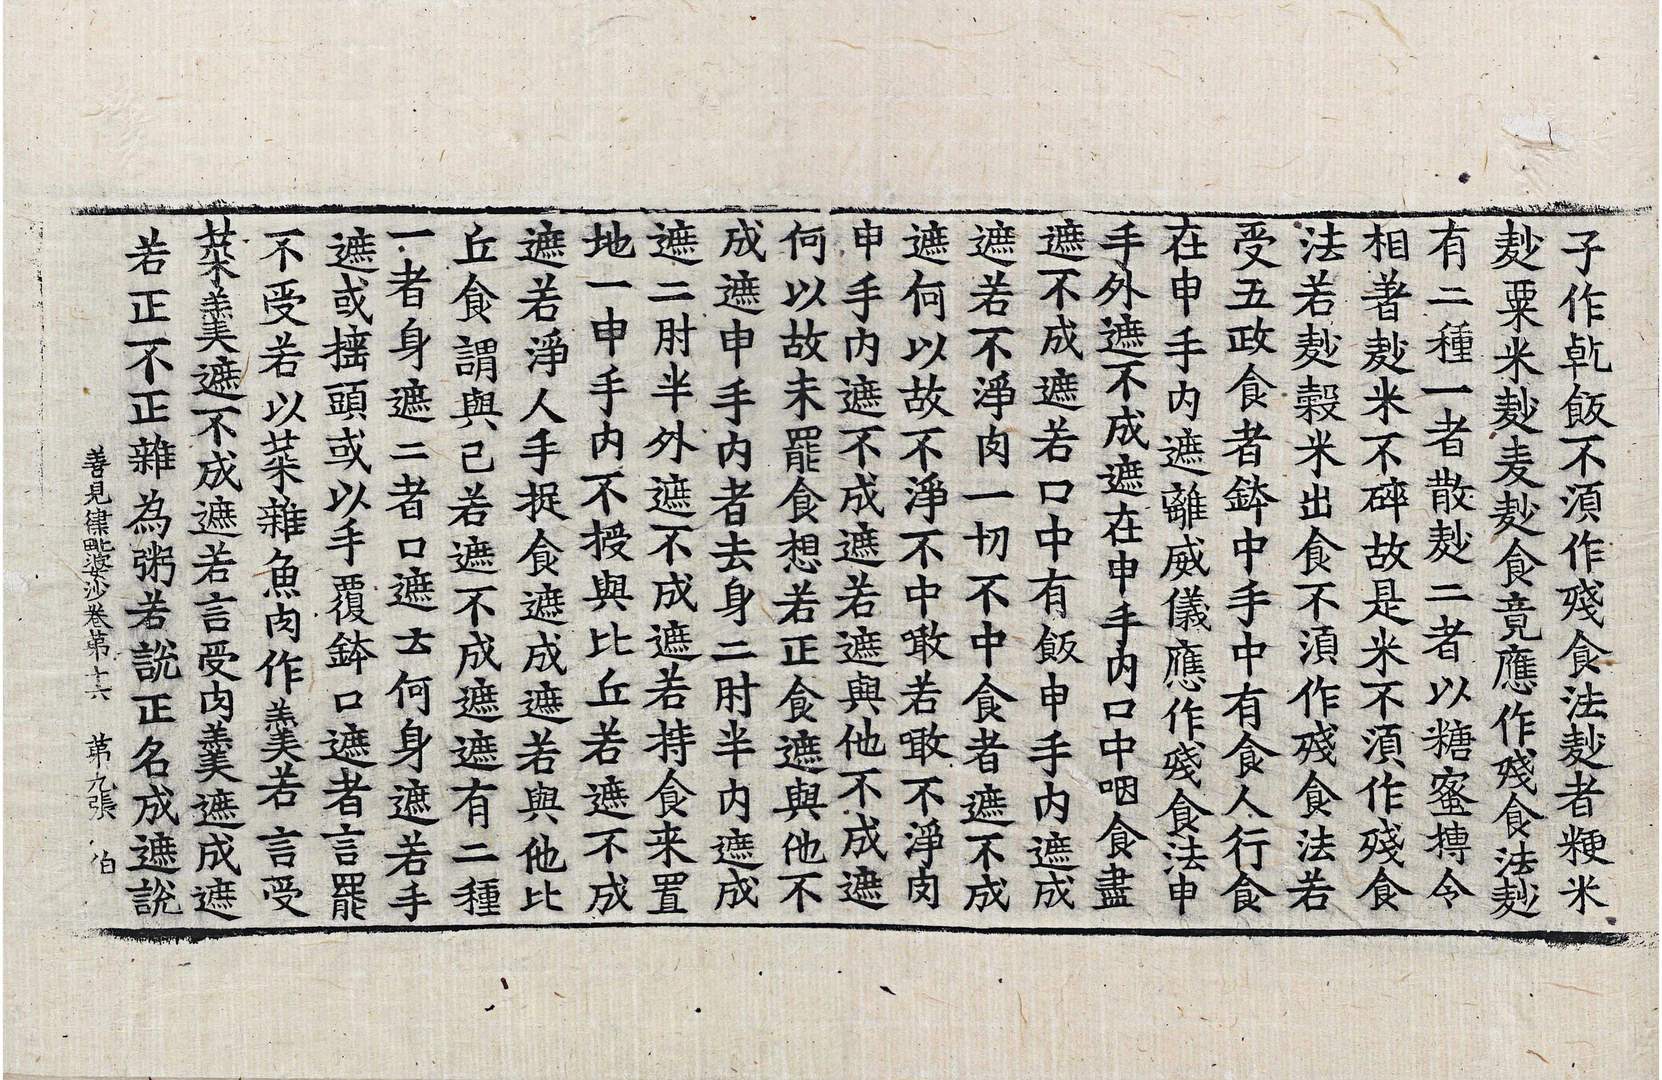 子作乹飯不湏作殘食法麨者粳米
麨粟米麨麦麨食竟應作殘食法麨
有二種一者散麨二者以糖蜜摶令
相著麨米不碎故是米不湏作殘食
法若麨穀米出食不湏作殘食法若
受五政食者鉢中手中有食人行食
在申手内遮離威儀應作殘食法申
手外遮不成遮在申手内口中咽食盡
遮不成遮若口中有飯申手内遮成
遮若不淨肉一切不中食者遮不成
遮何以故不淨不中噉若噉不淨肉
申手内遮不成遮若遮與他不成遮
何以故未罷食想若正食遮與他不
成遮申手内者去身二肘半内遮成
遮二肘半外遮不成遮若持食来置
地一申手内不授與比丘若遮不成
遮若淨人手捉食遮成遮若與他比
丘食謂與已若遮不成遮遮有二種
一者身遮二者口遮云何身遮若手
遮或揺頭或以手覆鉢口遮者言罷
不受若以菜雜魚肉作羹若言受
菜羹遮不成遮若言受肉羹遮成遮
若正不正雜為粥若說正名成遮說
善見律毗婆沙卷第十六 第九張 伯